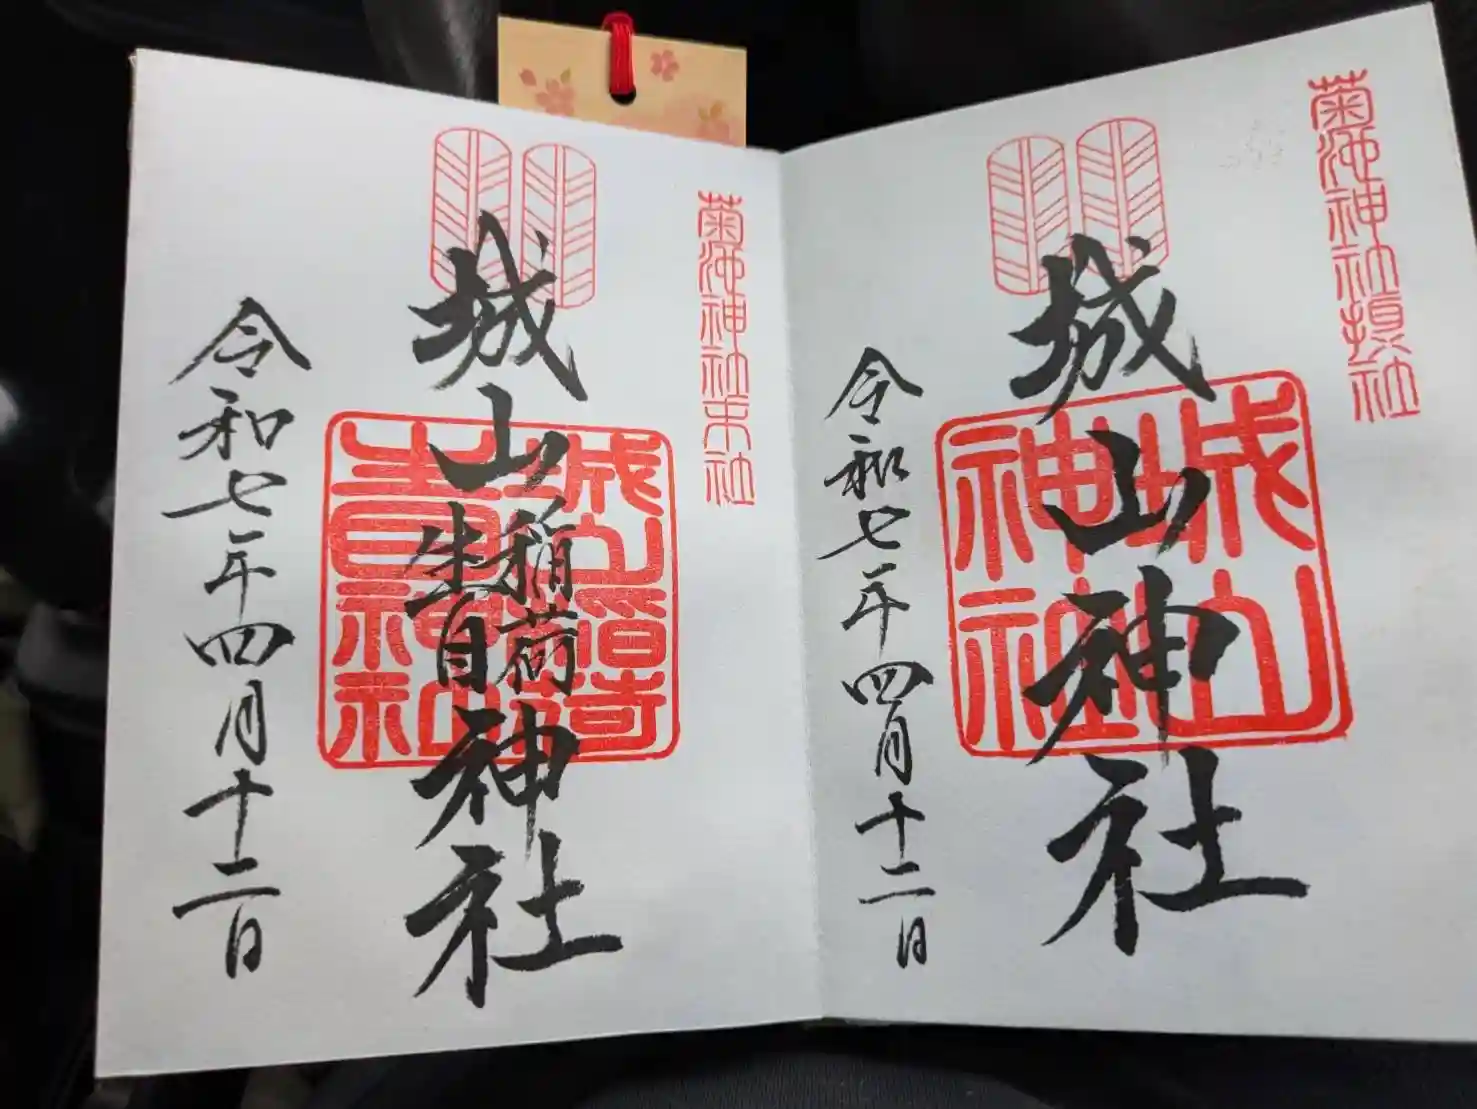 菊池神社摂社
城山神社
城山神社
令和七年四月十二日
菊池神社末社
城山稲荷生目神社
令和七年四月十二日